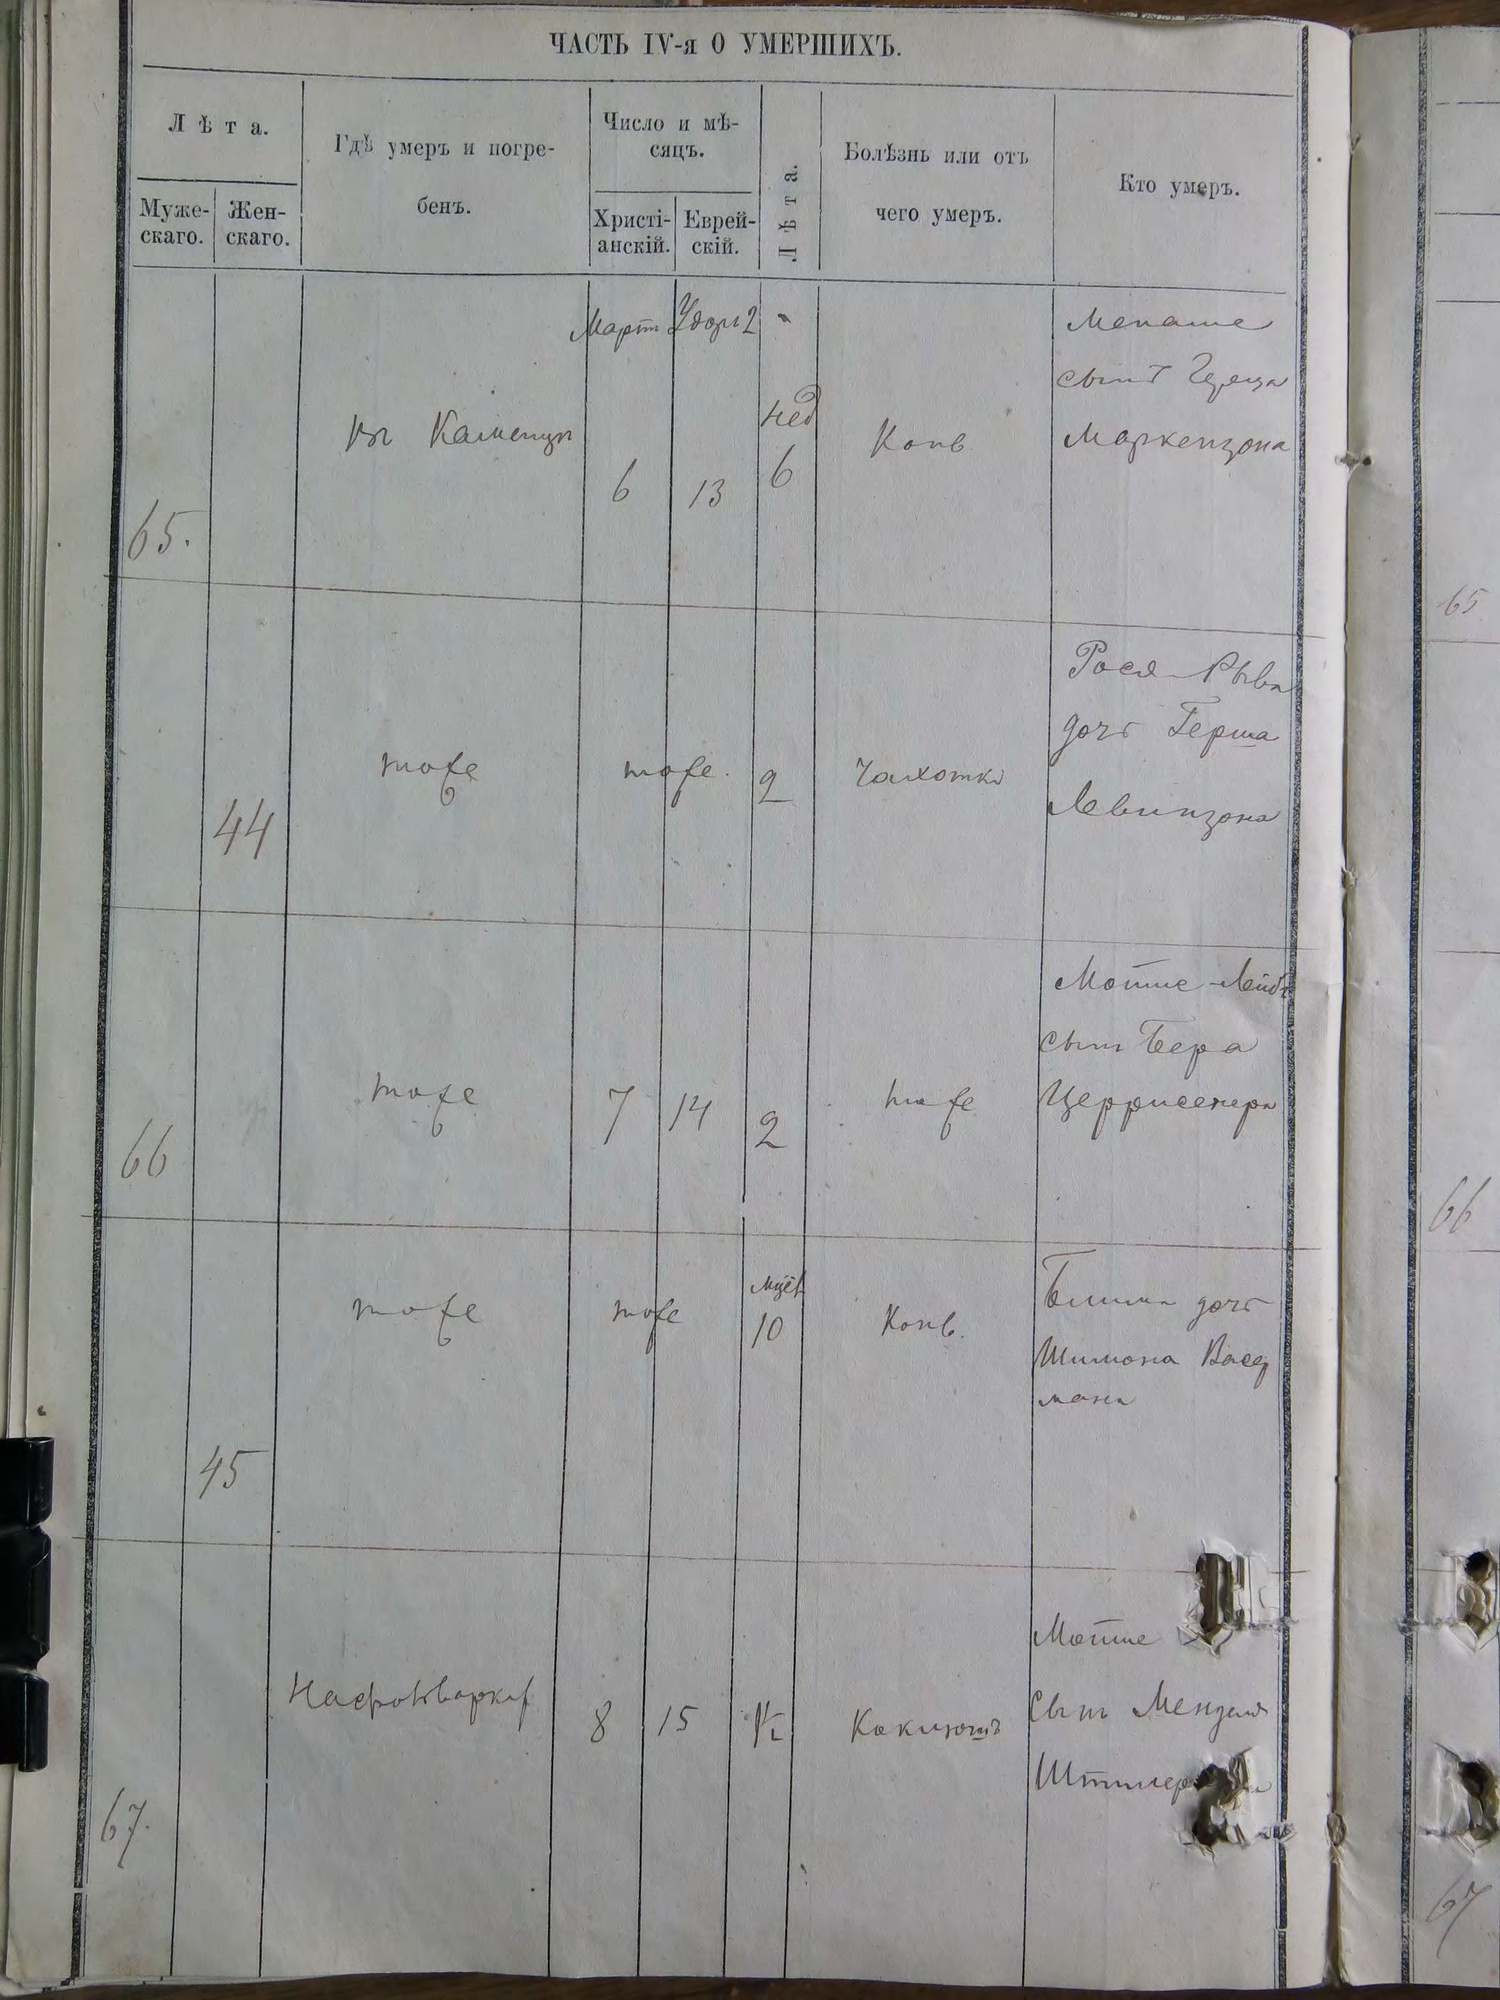 ЧАСТЬ IV-я О УМЕРШИХЪ.
Лѣта.
Муже-
скаго.
Жен-
скаго.
Гдѣ умеръ и погре-
бенъ.
Число и мѣ-
сяцъ.
Христі-
анскій.
Еврей-
скій.
Лѣта.
Болѣзнь или отъ
чего умеръ.
Кто умеръ.
65.
въ Каменцѣ
Мартъ
6
13
нед
6
Конв
Менаше
сынъ Герша
Маркензона
65
44
тоже
тоже.
2
Чахотка
Рося-Рыва
дочь Герша
Левинзона
66
тоже
7
14
2
тоже
Мотше-Лейбъ
сынъ Бера
66
45
тоже
тоже
мцев
10
Конв.
дочь
Шимона Васер
мана
67.
8
15
½
Коклюшъ
Мотше
сынъ Менделя
67